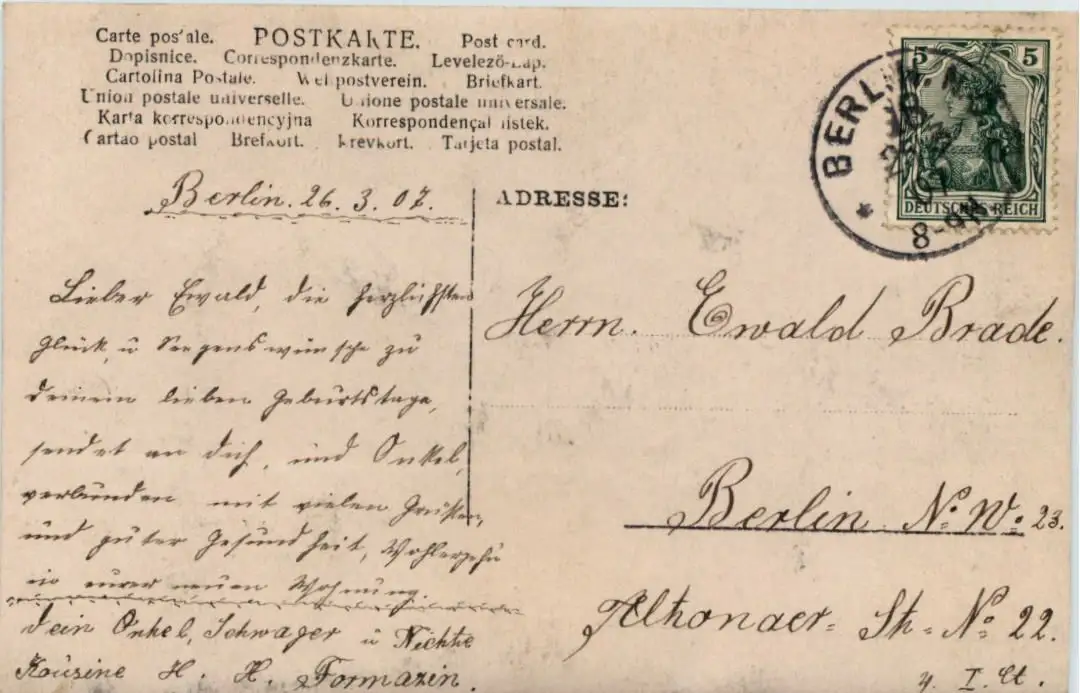 Carte postale. POSTKARTE. Post card.
Dopisnice. Correspondenzkarte. Levelező-Lap.
Cartolina Postale. Weltpostverein. Briefkart.
Union postale universelle. Unione postale universale.
Karta korrespondencyjna Korrespondenčal listek.
Cartao postal Brefkort. Brevkort. Tarjeta postal.
Berlin. 26. 3. 07.
Lieber Ewald, die herzlichsten
Glück, u Seegenswünsche zu
deinem lieben Geburtstage,
sendet an dich, und Onkel,
verbunden mit vielen Grüssen,
und guter Gesundheit,
in eurer neuen Wohnung.
Dein Onkel, Schwager u Nichte
Kousine H. H. Formazin.
5 5
DEUTSCHES REICH
BERLIN
8-9N
ADRESSE:
Herrn. Ewald Brade.
Berlin No. W. 23.
Altonaer- St. No 22.
I. Et.